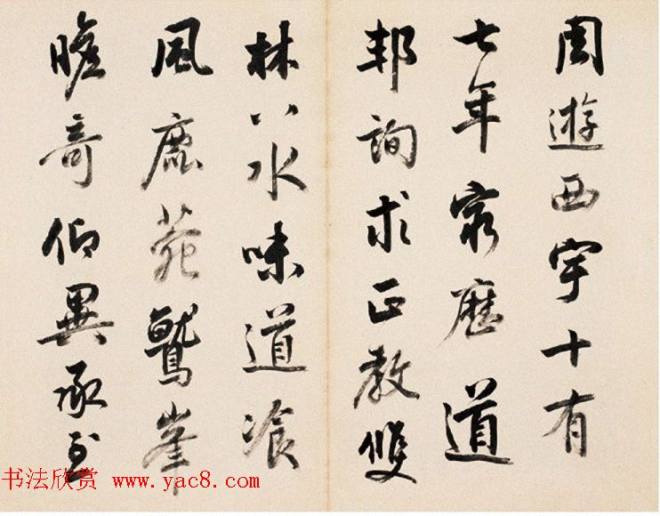 周遊西宇十有
七年窮歷道
邦詢求正教雙
林八水味道飡
風鹿苑鷲峯
瞻奇仰異承至
书法欣赏 www.yac8.com